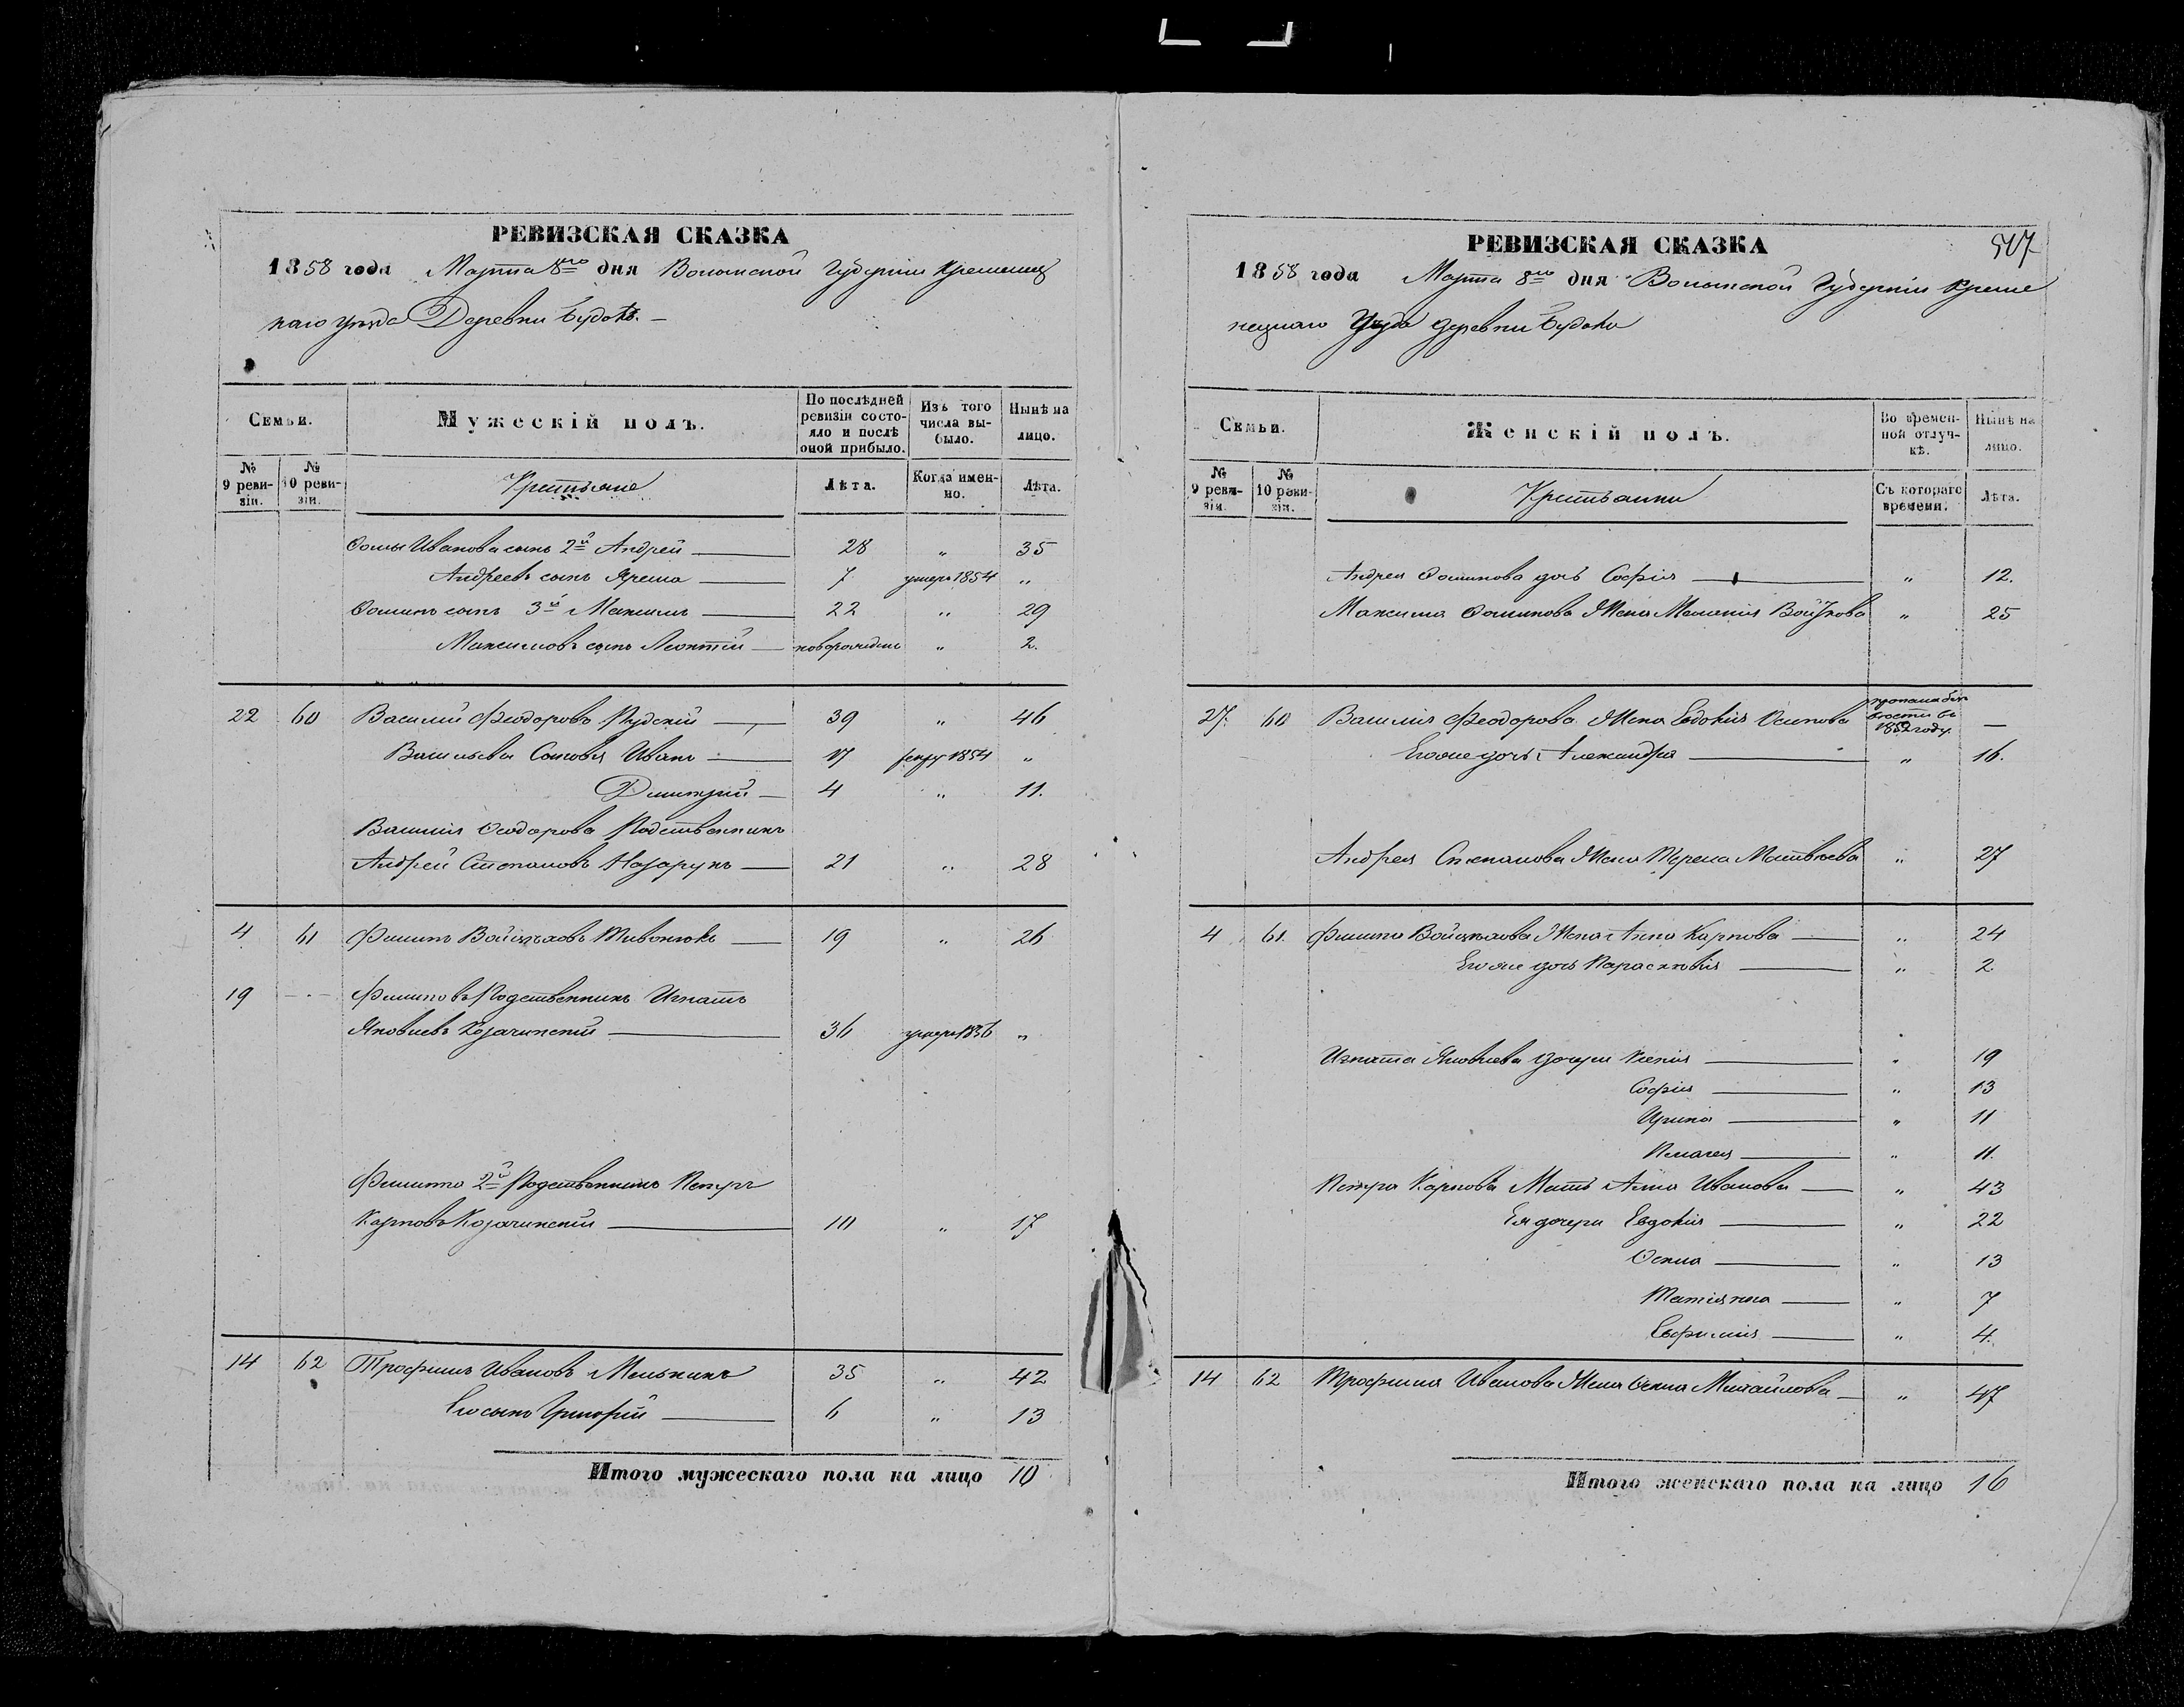 РЕВИЗСКАЯ СКАЗКА
1858 года Марта 8го дня Волынской Губерніи Кременец
каго уѣзда Деревни Будокъ. —
Семьи.
Мужескій полъ.
По послѣдней ревизіи состояло и послѣ оной прибыло.
Изъ того числа выбыло.
Нынѣ на лицо.
№ 9 ревизіи.
№ 10 ревизіи.
Крестьяне
Лѣта.
Когда именно.
Лѣта.
Ѳомы Иванова сынъ 2й Андрей 28 „ 35
Андреевъ сынъ Ярема 7 умеръ 1854 „
Ѳоминъ сынъ 3й Максимъ 22 „ 29
Максимовъ сынъ Леонтій новорожденъ „ 2.
22 60 Василий Феодоровъ Рудскій 39 „ 46
Васильева Сыновья Иванъ 17 рекру 1854 „
Дмитрий 4 „ 11.
Василія Ѳеодорова Родственникъ
Андрей Степановъ Назарукъ 21 „ 28
4 61 Филипъ Войцѣховъ 19 „ 26
19 Филиповъ Родственникъ Игнатъ
Яковлевъ Козачинскій 36 умеръ 1856 „
Филипа 2й Родственникъ Петръ
Карповъ Козачинскій 10 „ 17
14 62 Трофимъ Ивановъ Мельникъ 35 „ 42
Его сынъ Григорій 6 „ 13
Итого мужескаго пола на лицо 10
РЕВИЗСКАЯ СКАЗКА
507
1858 года Марта 8го дня Волынской Губерніи Креме
нецкаго Уѣзда деревни Будокъ
Семьи.
Женскій полъ.
Во временной отлучкѣ.
Нынѣ на лицо.
№ 9 ревизіи.
№ 10 ревизіи.
Крестьянки
Съ котораго времени.
Лѣта.
Андрея Ѳоминова дочь Софія „ 12.
Максима Ѳоминова Жена Меланія Войткова „ 25
27. 60 Василія Феодорова Жена Евдокія Осипова въ 1852 году. —
Его же дочь Александра „ 16.
Андрея Степанова Жена Матвѣева „ 27
4 61. Филипа Войцѣхова Жена Анна Карпова „ 24
Его же дочь Параскевія „ 2.
Игната Яковлева дочери Ксенія „ 19
Софія „ 13
Ирина „ 11
Пелагея „ 11.
Петра Карпова Мать Анна Иванова „ 43
Ея дочери Евдокія „ 22
Ѳекла „ 13
Татіяна „ 7
Евфимія „ 4.
14 62 Трофима Иванова Жена Ѳекла Михайлова „ 47
Итого женскаго пола на лицо 16